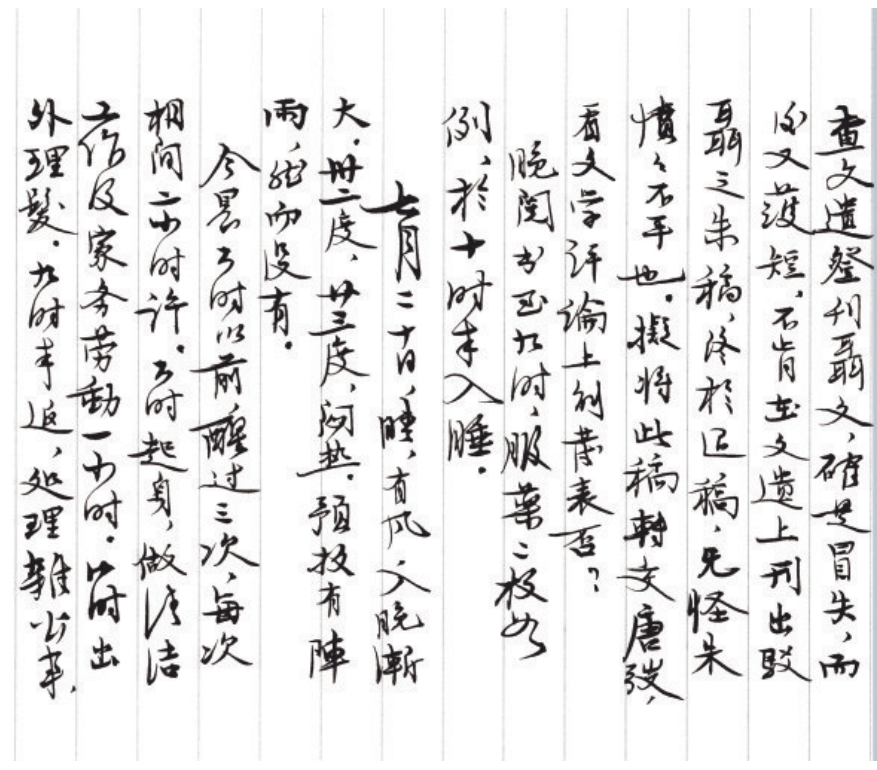 查文遗登刊聂文，确是冒失，而
后又护短，不肯在文遗上刊出驳
聂之朱稿，终於退稿，无怪朱
愤々不平也。拟将此稿转交唐弢，
看文学评论上能发表否？
晚阅书至九时，服药二枚如
例，於十时半入睡。
七月二十日，晴，有风，入晚渐
大。卅二度，廿三度，闷热。预报有阵
雨，然而没有。
今晨五时以前，醒过三次，每次
相间二小时许。五时起身，做清洁
工作及家务劳动一小时。八时出
外理发。九时半返，处理杂公事，